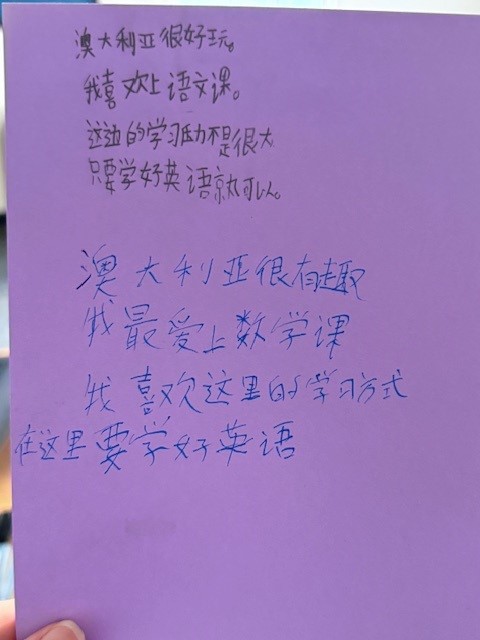 澳大利亚很好玩。
我喜欢上语文课。
这边的学习压力不是很大
只要学好英语就可以。
澳大利亚很有趣
我最爱上数学课
我喜欢这里的学习方式
在这里要学好英语